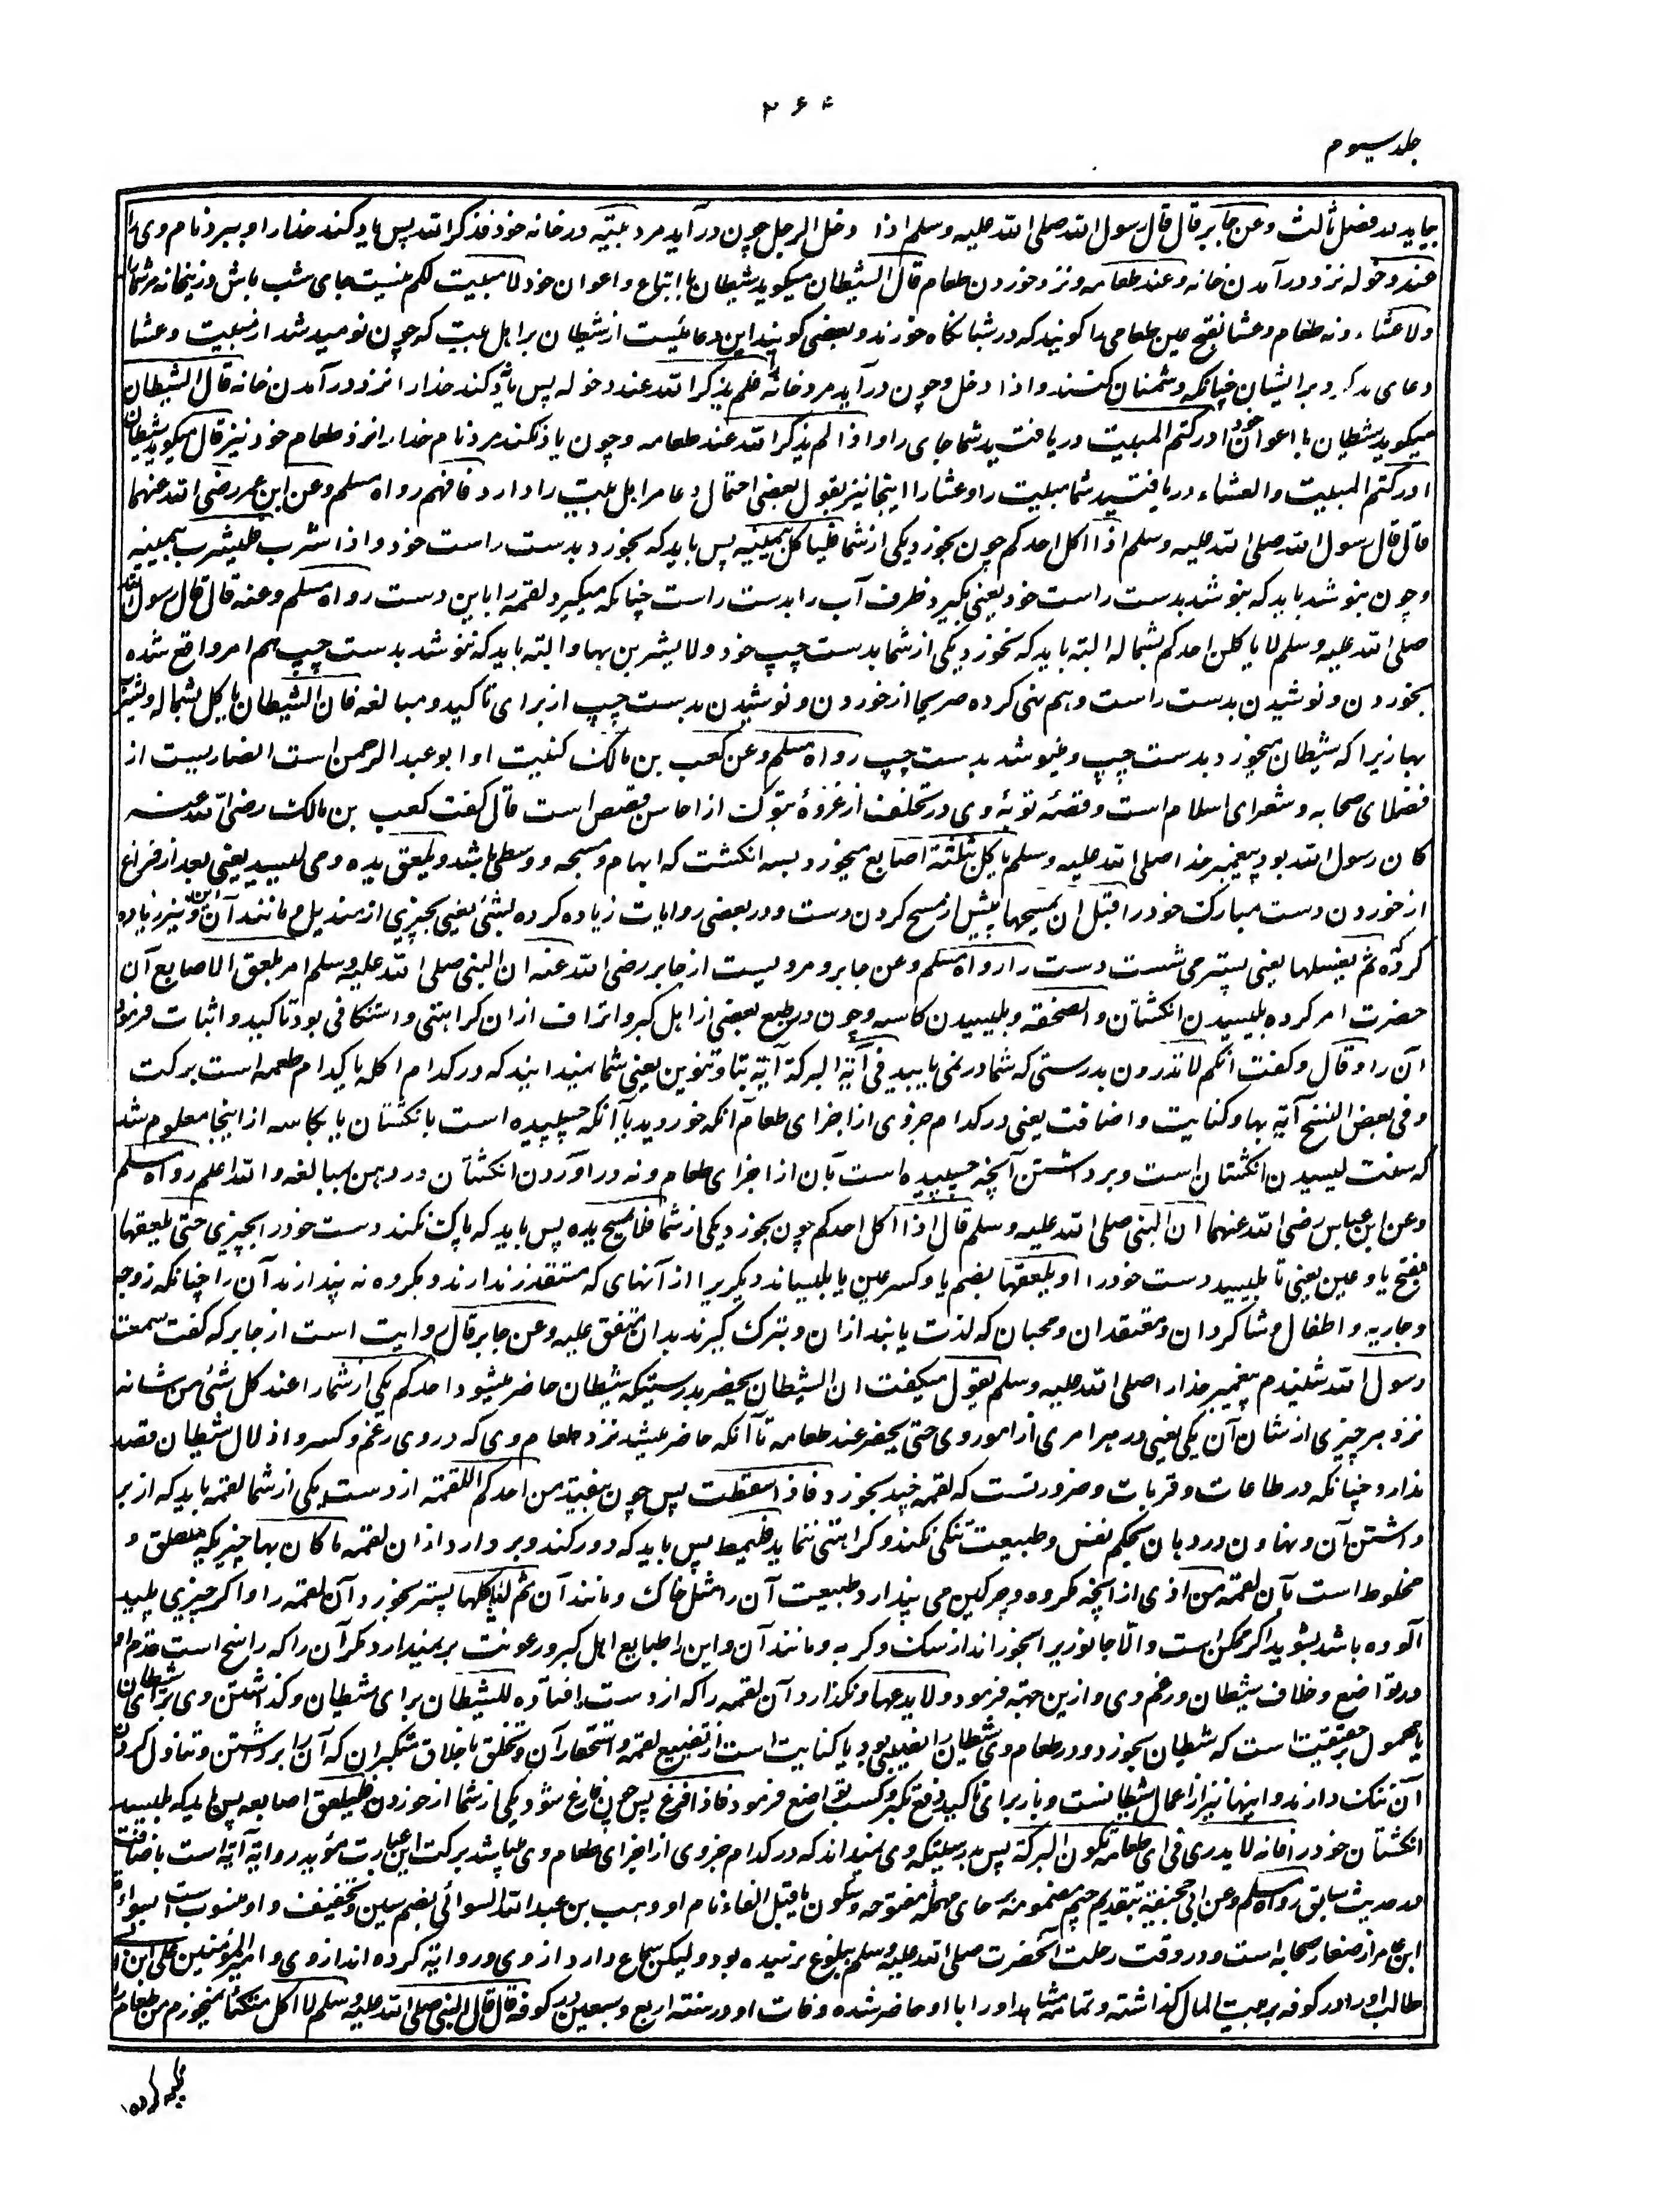 ۲۶۴
جلد سیوم
بیاید در فصل ثالث وعن جابر قال قال رسول الله صلی الله علیه وسلم اذا دخل الرجل چون در آید مرد بیته در خانه خود فذکر الله پس یاد کند خدا را و ببرد نام وی را
عند دخوله نزد در آمدن خانه وعند طعامه و نزد خوردن طعام قال الشیطان میگوید شیطان با اتباع و اعوان خود لا مبیت لکم نیست جای شب باش درینخانه مر شما را
ولا عشاء و نه طعام وعشا بفتح عین طعامی را گویند که در شبانگاه خورند و بعضی گویند این دعائیست از شیطان بر اهل بیت که چون نومید شد از مبیت و عشا
دعای بد کرد بر ایشان چنانکه دشمنان کنند و اذا دخل و چون در آید مرد خانه فلم یذکر الله عند دخوله پس یاد نکند خدا را نزد در آمدن خانه قال الشیطان
میگوید شیطان با اعوان خود ادرکتم المبیت دریافتید شما جای را و اذا لم یذکر الله عند طعامه و چون یاد نکند مرد نام خدا را نزد طعام خود نیز قال میگوید شیطان
ادرکتم المبیت والعشاء دریافتید شما مبیت را وعشا را اینجا نیز بقول بعضی احتمال دعا مر اهل بیت را دارد فافهم رواه مسلم وعن ابن عمر رضی الله عنهما
قال قال رسول الله صلی الله علیه وسلم اذا اکل احدکم چون بخورد یکی از شما فلیاکل بیمینه پس باید که بخورد بدست راست خود و اذا شرب فلیشرب بیمینه
و چون بنوشد باید که بنوشد بدست راست خود یعنی بگیرد ظرف آب را بدست راست چنانکه میگیرد لقمه را باین دست رواه مسلم وعنه قال قال رسول الله
صلی الله علیه وسلم لا یاکلن احدکم بشماله البته باید که نخورد یکی از شما بدست چپ خود ولا یشربن بها و البته باید که ننوشد بدست چپ هم امر واقع شده
بخوردن و نوشیدن بدست راست و هم نهی کرده صریحا از خوردن و نوشیدن بدست چپ از برای تاکید و مبالغه فان الشیطان یاکل بشماله ویشرب
بها زیرا که شیطان میخورد بدست چپ و مینوشد بدست چپ رواه مسلم وعن کعب بن مالک کنیت او ابو عبد الرحمن است انصاریست از
فضلای صحابه و شعرای اسلام است و قصهٔ توبهٔ وی در تخلف از غزوهٔ تبوک از احاسن قصص است قال گفت کعب بن مالک رضی الله عنه
کان رسول الله بود پیغمبر خدا صلی الله علیه وسلم یاکل بثلثة اصابع میخورد بسه انگشت که ابهام و مسبحه و وسطی باشد ویلعق یده و می لیسید یعنی بعد از فراغ
از خوردن دست مبارک خود را قبل ان یمسحها پیش از مسح کردن دست و در بعضی روایات زیاده کرده بشئ یعنی بچیزی از مندیل و مانند آن و این نیز زیاده
کرده ثم یغسلها یعنی پستر می شست دست را رواه مسلم وعن جابر و مرویست از جابر رضی الله عنه ان النبی صلی الله علیه وسلم امر بلعق الاصابع آن
حضرت امر کرده بلیسیدن انگشتان والصحفة و بلیسیدن کاسه و چون در طبع بعضی از اهل کبر و اتراف ازان کراهتی و استنکافی بود تاکید و اثبات فرمود
آن را و قال و گفت انکم لا تدرون بدرستی که شما در نمی یابید فی آیة البرکة آیة بتا و تنوین یعنی شما نمیدانید که در کدام اکله یا کدام طعمه است برکت
و فی بعض النسخ آیه بها و کنایت و اضافت یعنی در کدام جزوی از اجزای طعام آنکه خوردید یا آنکه چسپیده است بانگشتان یا بکاسه از اینجا معلوم شد
که سنت لیسیدن انگشتان است و برداشتن آنچه چسپیده است بآن از اجزای طعام و نه در آوردن انگشتان در دهن بمبالغه والله اعلم رواه مسلم
وعن ابن عباس رضی الله عنهما ان النبی صلی الله علیه وسلم قال اذا اکل احدکم چون بخورد یکی از شما فلا یمسح یده پس باید که پاک نکند دست خود را بچیزی حتی یلعقها
بفتح یا و عین یعنی تا بلیسد دست خود را او یلعقها بضم یا و کسر عین یا بلیساند دیگریرا از آنهای که متقذر ندارند و مکروه نه پندارند آن را چنانکه زوجه
و جاریه و اطفال و شاگردان و معتقدان و محبان که لذت یابند ازان و تبرک گیرند بدان متفق علیه وعن جابر قال روایت است از جابر که گفت سمعت
رسول الله شنیدم پیغمبر خدا را صلی الله علیه وسلم یقول میگفت ان الشیطان یحضر بدرستیکه شیطان حاضر میشود احدکم یکی از شما را عند کل شئ من شانه
نزد هر چیزی از شان آن یکی یعنی در هر امری از امور وی حتی یحضر عند طعامه تا آنکه حاضر میشد نزد طعام وی که در وی رغم و کسر و اذلال شیطان قصد
ندارد چنانکه در طاعات و قربات و ضرورتست که لقمه چند بخورد فاذا سقطت پس چون بیفتد من احدکم اللقمة از دست یکی از شما لقمه باید که از بر
داشتن آن و نهادن در دهان بحکم نفس و طبیعت تنگی نکند و کراهتی ننماید فلیمط پس باید که دور کند و بر دارد ازان لقمه ما کان بها چیزیکه متعلق و
مخلوط است بآن لقمه من اذی از آنچه مکروه و چرکین می پندارد طبیعت آن را مثل خاک و مانند آن ثم لیاکلها پستر بخورد آن لقمه را و اگر چیزی پلید
آلوده باشد بشوید اگر ممکن است والّا جانوریرا بخوراند از سگ و گربه و مانند آن و این را طبایع اهل کبر و رعونت بر نمیدارد مگر آن را که راسخ است قدم او
در تواضع و خلاف شیطان و رغم وی و ازین جهته فرمود ولا یدعها و نگذارد آن لقمه را که از دست افتاده للشیطان برای شیطان و گذاشتن وی برای شیطان
یا محمول بر حقیقت است که شیطان بخورد و در طعام وی شیطان را نصیبی بود یا کنایت است از تضییع لقمه و استحقار آن و تخلق باخلاق متکبران که آن را برداشتن و تناول کردن
آن ننگ دارند و اینها نیز از اعمال شیطانست و باز برای تاکید دفع تکبر و کسب تواضع فرمود فاذا فرغ پس چون فارغ شود یکی از شما از خوردن فلیلعق اصابعه پس باید که بلیسد
انگشتان خود را فانه لا یدری فی ای طعامه تکون البرکة پس بدرستیکه وی نمیداند که در کدام جزوی از اجزای طعام وی میباشد برکت این عبارت مؤید روایة آیه است باضافت
در حدیث سابق رواه مسلم وعن ابی جحیفة بتقدیم جیم مضمومه بر حای مهمله مفتوحه و سکون یا قبل الفاء نام او وهب بن عبد الله السوائی بضم سین و تخفیف واو منسوب است بسواءة
ابن عامر از صغار صحابه است و در وقت رحلت آنحضرت صلی الله علیه وسلم ببلوغ نرسیده بود ولیکن سماع دارد از وی و روایة کرده اند از وی و امیر المؤمنین علی ابن ابی
طالب او را در کوفه بر بیت المال گذاشته و تمامه مشاهد او را با او حاضر شده وفات او در سنه اربع و سبعین در کوفه قال قال النبی صلی الله علیه وسلم لا اکل متکئا نمیخورم من طعام را